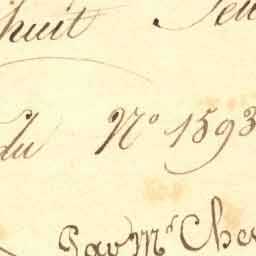 huit
du N° 1593
Par Mr Che